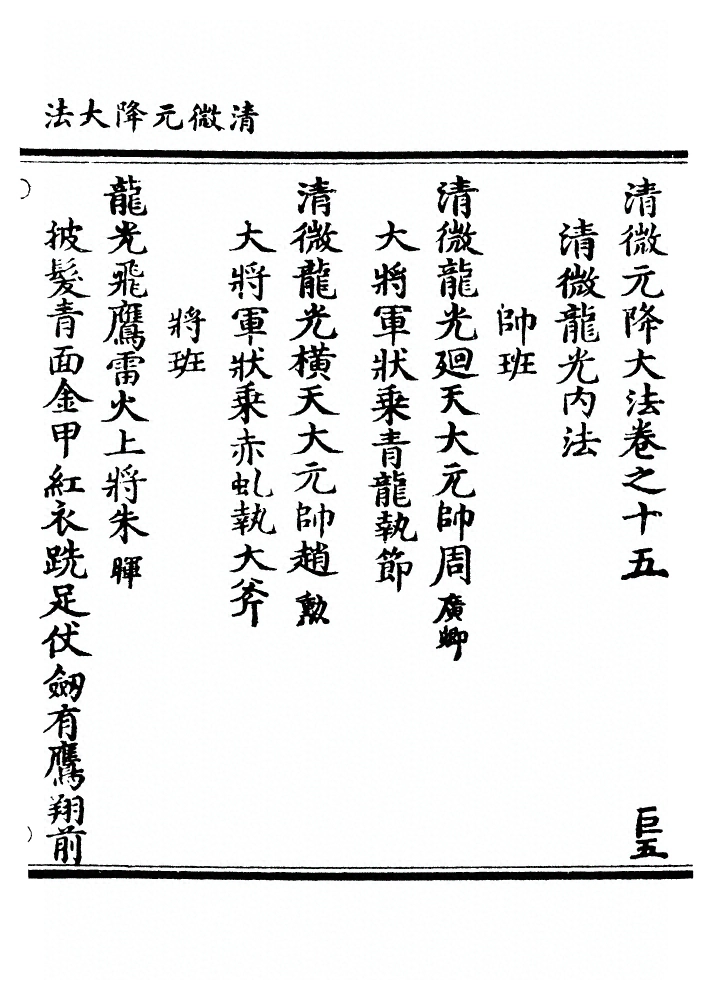 清微元降大法
清微元降大法卷之十五　巨五
清微龍光內法
帥班
清微龍光廻天大元帥周廣卿
大將軍狀乘青龍執節
清微龍光橫天大元帥趙勳
大將軍狀乘赤虬執大斧
將班
龍光飛鷹雷火上將朱暉
披髮青面金甲紅衣跣足伏劒有鷹翔前